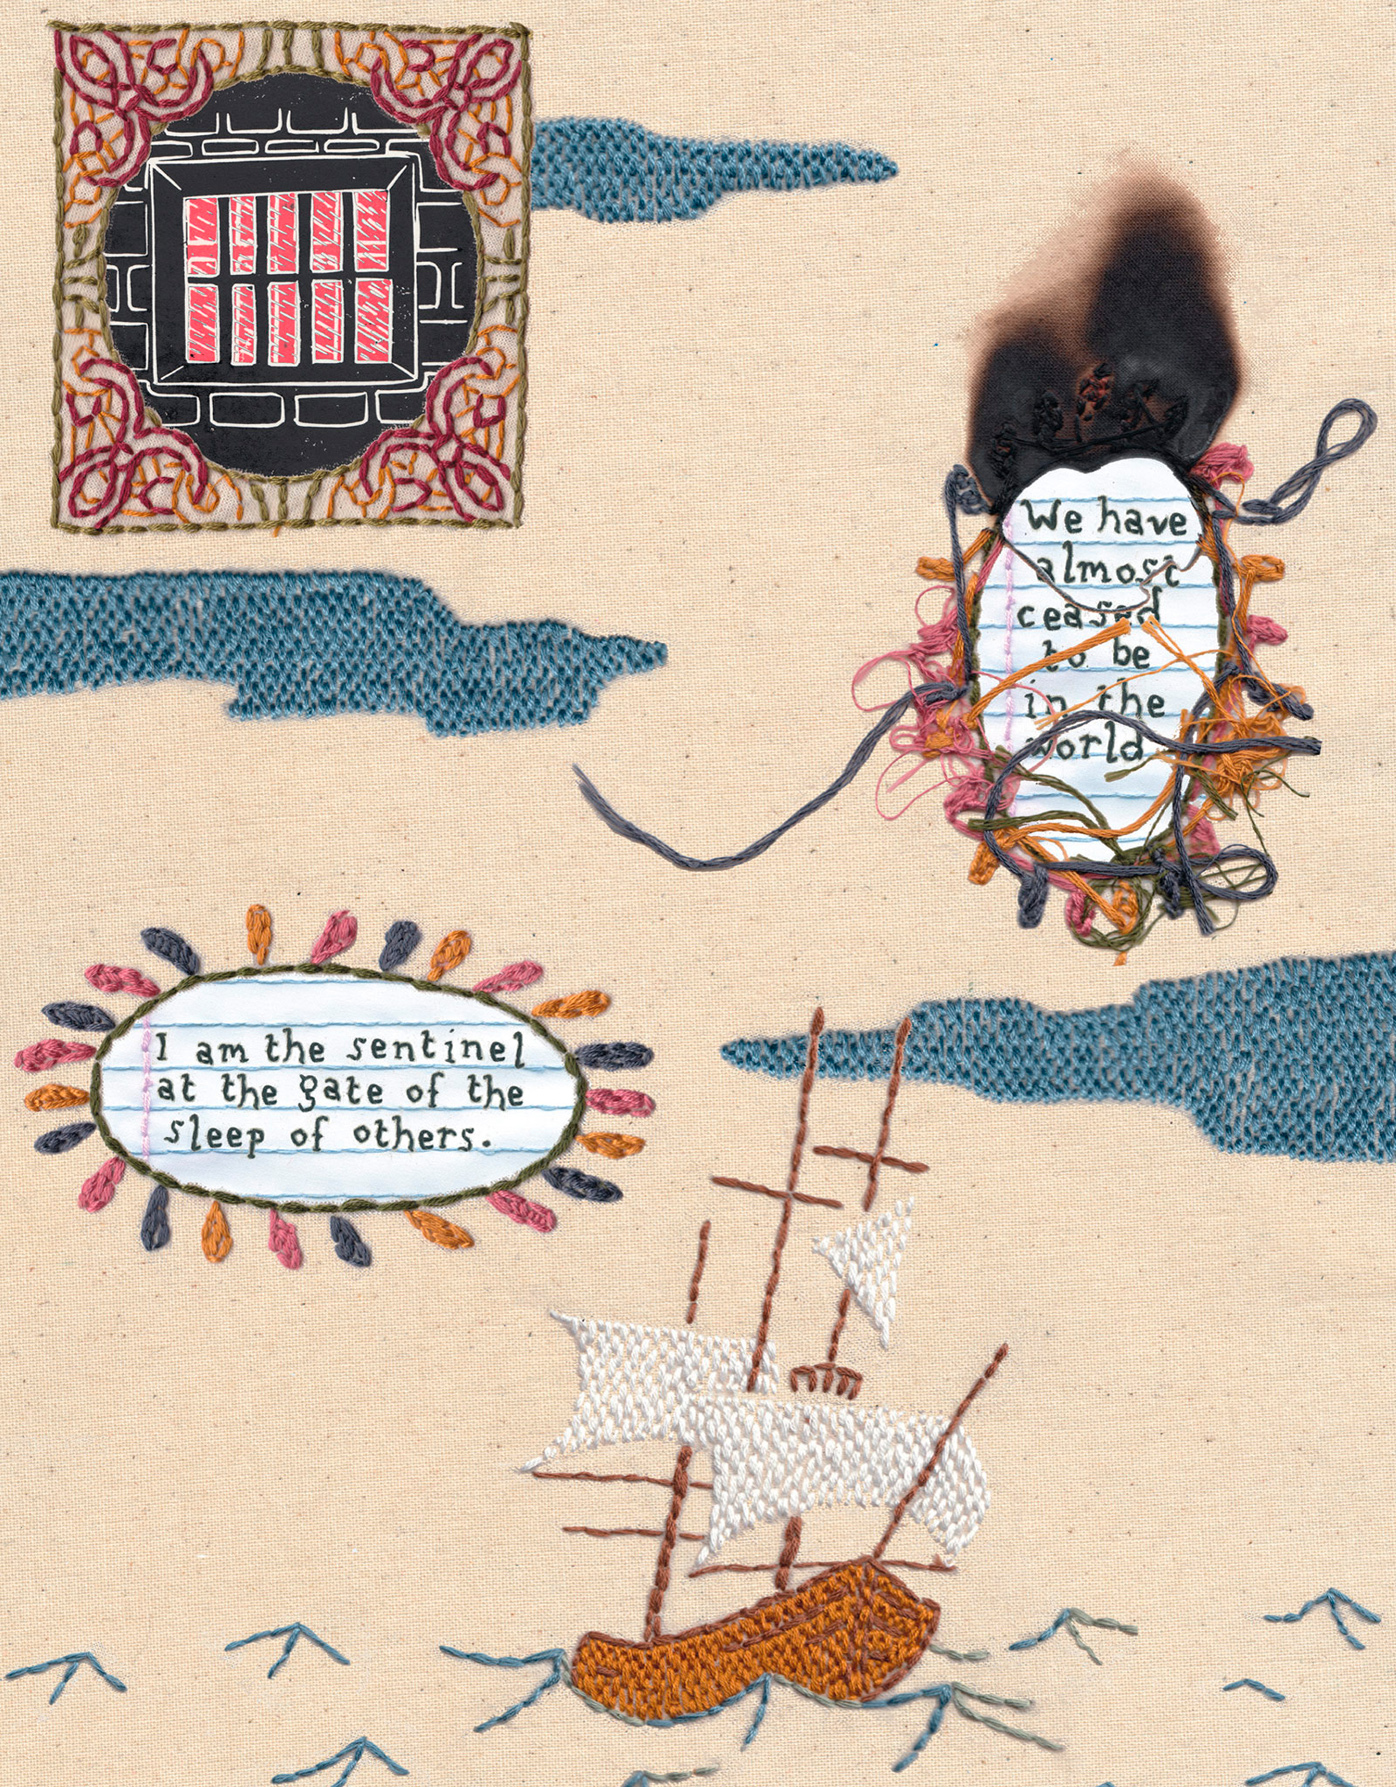 We have
almost
ceased
to be
in the
world
I am the sentinel
at the gate of the
sleep of others.